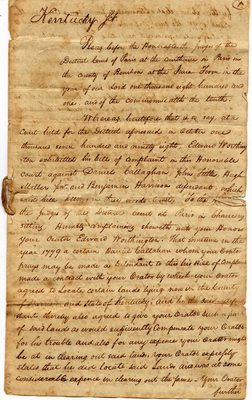 Kentucky Sct.
Pleas before the Honourable Judges of the
District Court of Paris at the Courthouse in Paris in
the County of Bourbon at the June Term in the
year of our Lord one thousand eight hundred and
one, and of the Commonwealth the tenth.
Whereas heretofore that is to say, at a
Court held for the District aforesaid in October one
thousand seven hundred and ninety eight, Edward Worthing
ton exhibited his bill of Complaint in this Honorable
Court against Daniel Callaghan John Hugh
Miller Junr. and Benjamin Harrison defendant which
said bill in these words To the
the Judges of the District Court at Paris in Chancery
sitting, Humbly complaining sheweth unto your Honors
Your Orator Edward Worthington. That sometime in the
year 1779 a certain Daniel Callahan whom your Orator
prays may be made a defendant to this his Bill of Complaint
made a contract with your Orator by which your Orator
agreed to locate certain lands lying now in the County
and State of Kentucky, and he the said
dant thereby also agreed to give your Orator such a part
of said lands as would sufficiently compensate your Orator
for his trouble and also for any expence your Orator might
be at in clearing out said lands, Your Orator expressly
states that he did locate said lands and was at some
considerable expence in clearing out the same. Your Orator
further